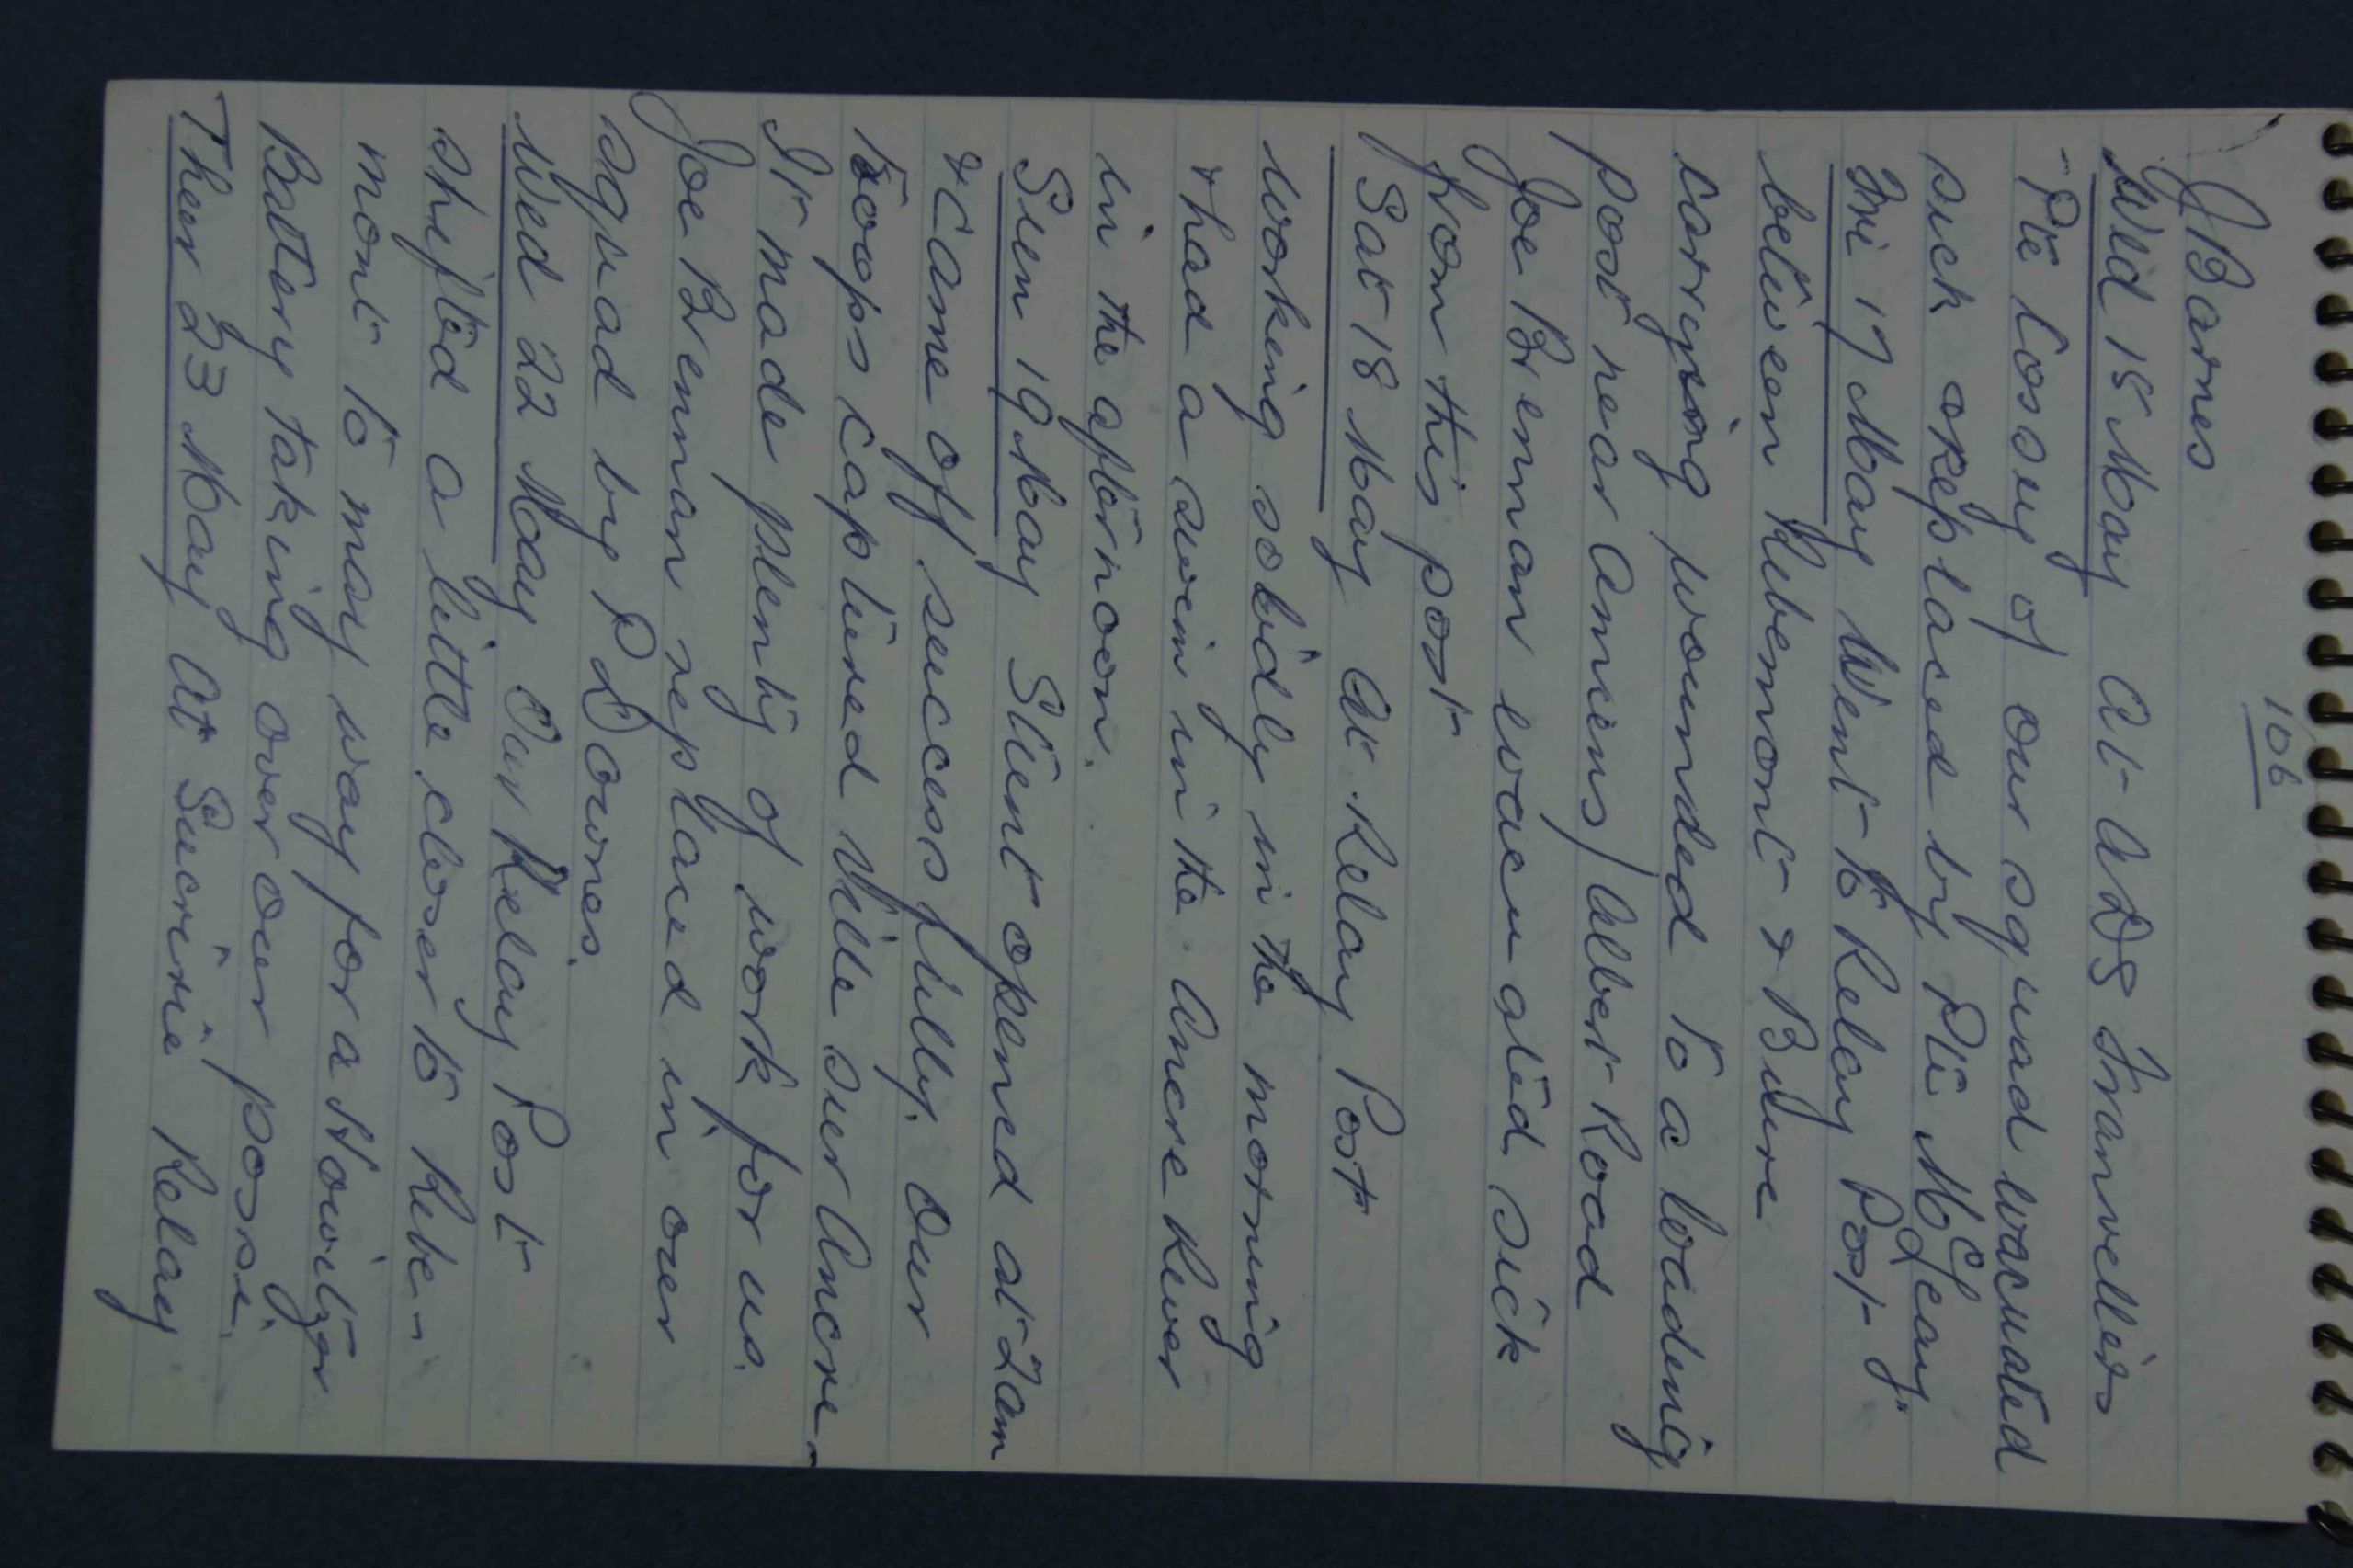 106
J Barnes
Wed 15 May At ADS Franvellers
- Pte Cosny of our squad evacuated
sick & replaced by Pte McLeay.
Fri 17 May Went to Relay Post
between Ribemont & Buire
carrying wounded to a loading
post near Amiens/Albert Road
Joe Brennan evacuated sick
from this post
Sat 18 May At Relay Post
working solidly in the morning
& had a swim in the Ancre River
in the afternoon.
Sun 19 May Stunt opened at 2am
& came off successfully. Our
troops captured Ville Sur Ancre -
It made plenty of work for us.
Joe Brennan replaced in our
squad by P Downes.
Wed 22 May Our Relay Post
shifted a little closer to Ribe-
mont to may way for a Howitzer
Battery taking over our possi.
Thur 23 May At Sucrerie Relay